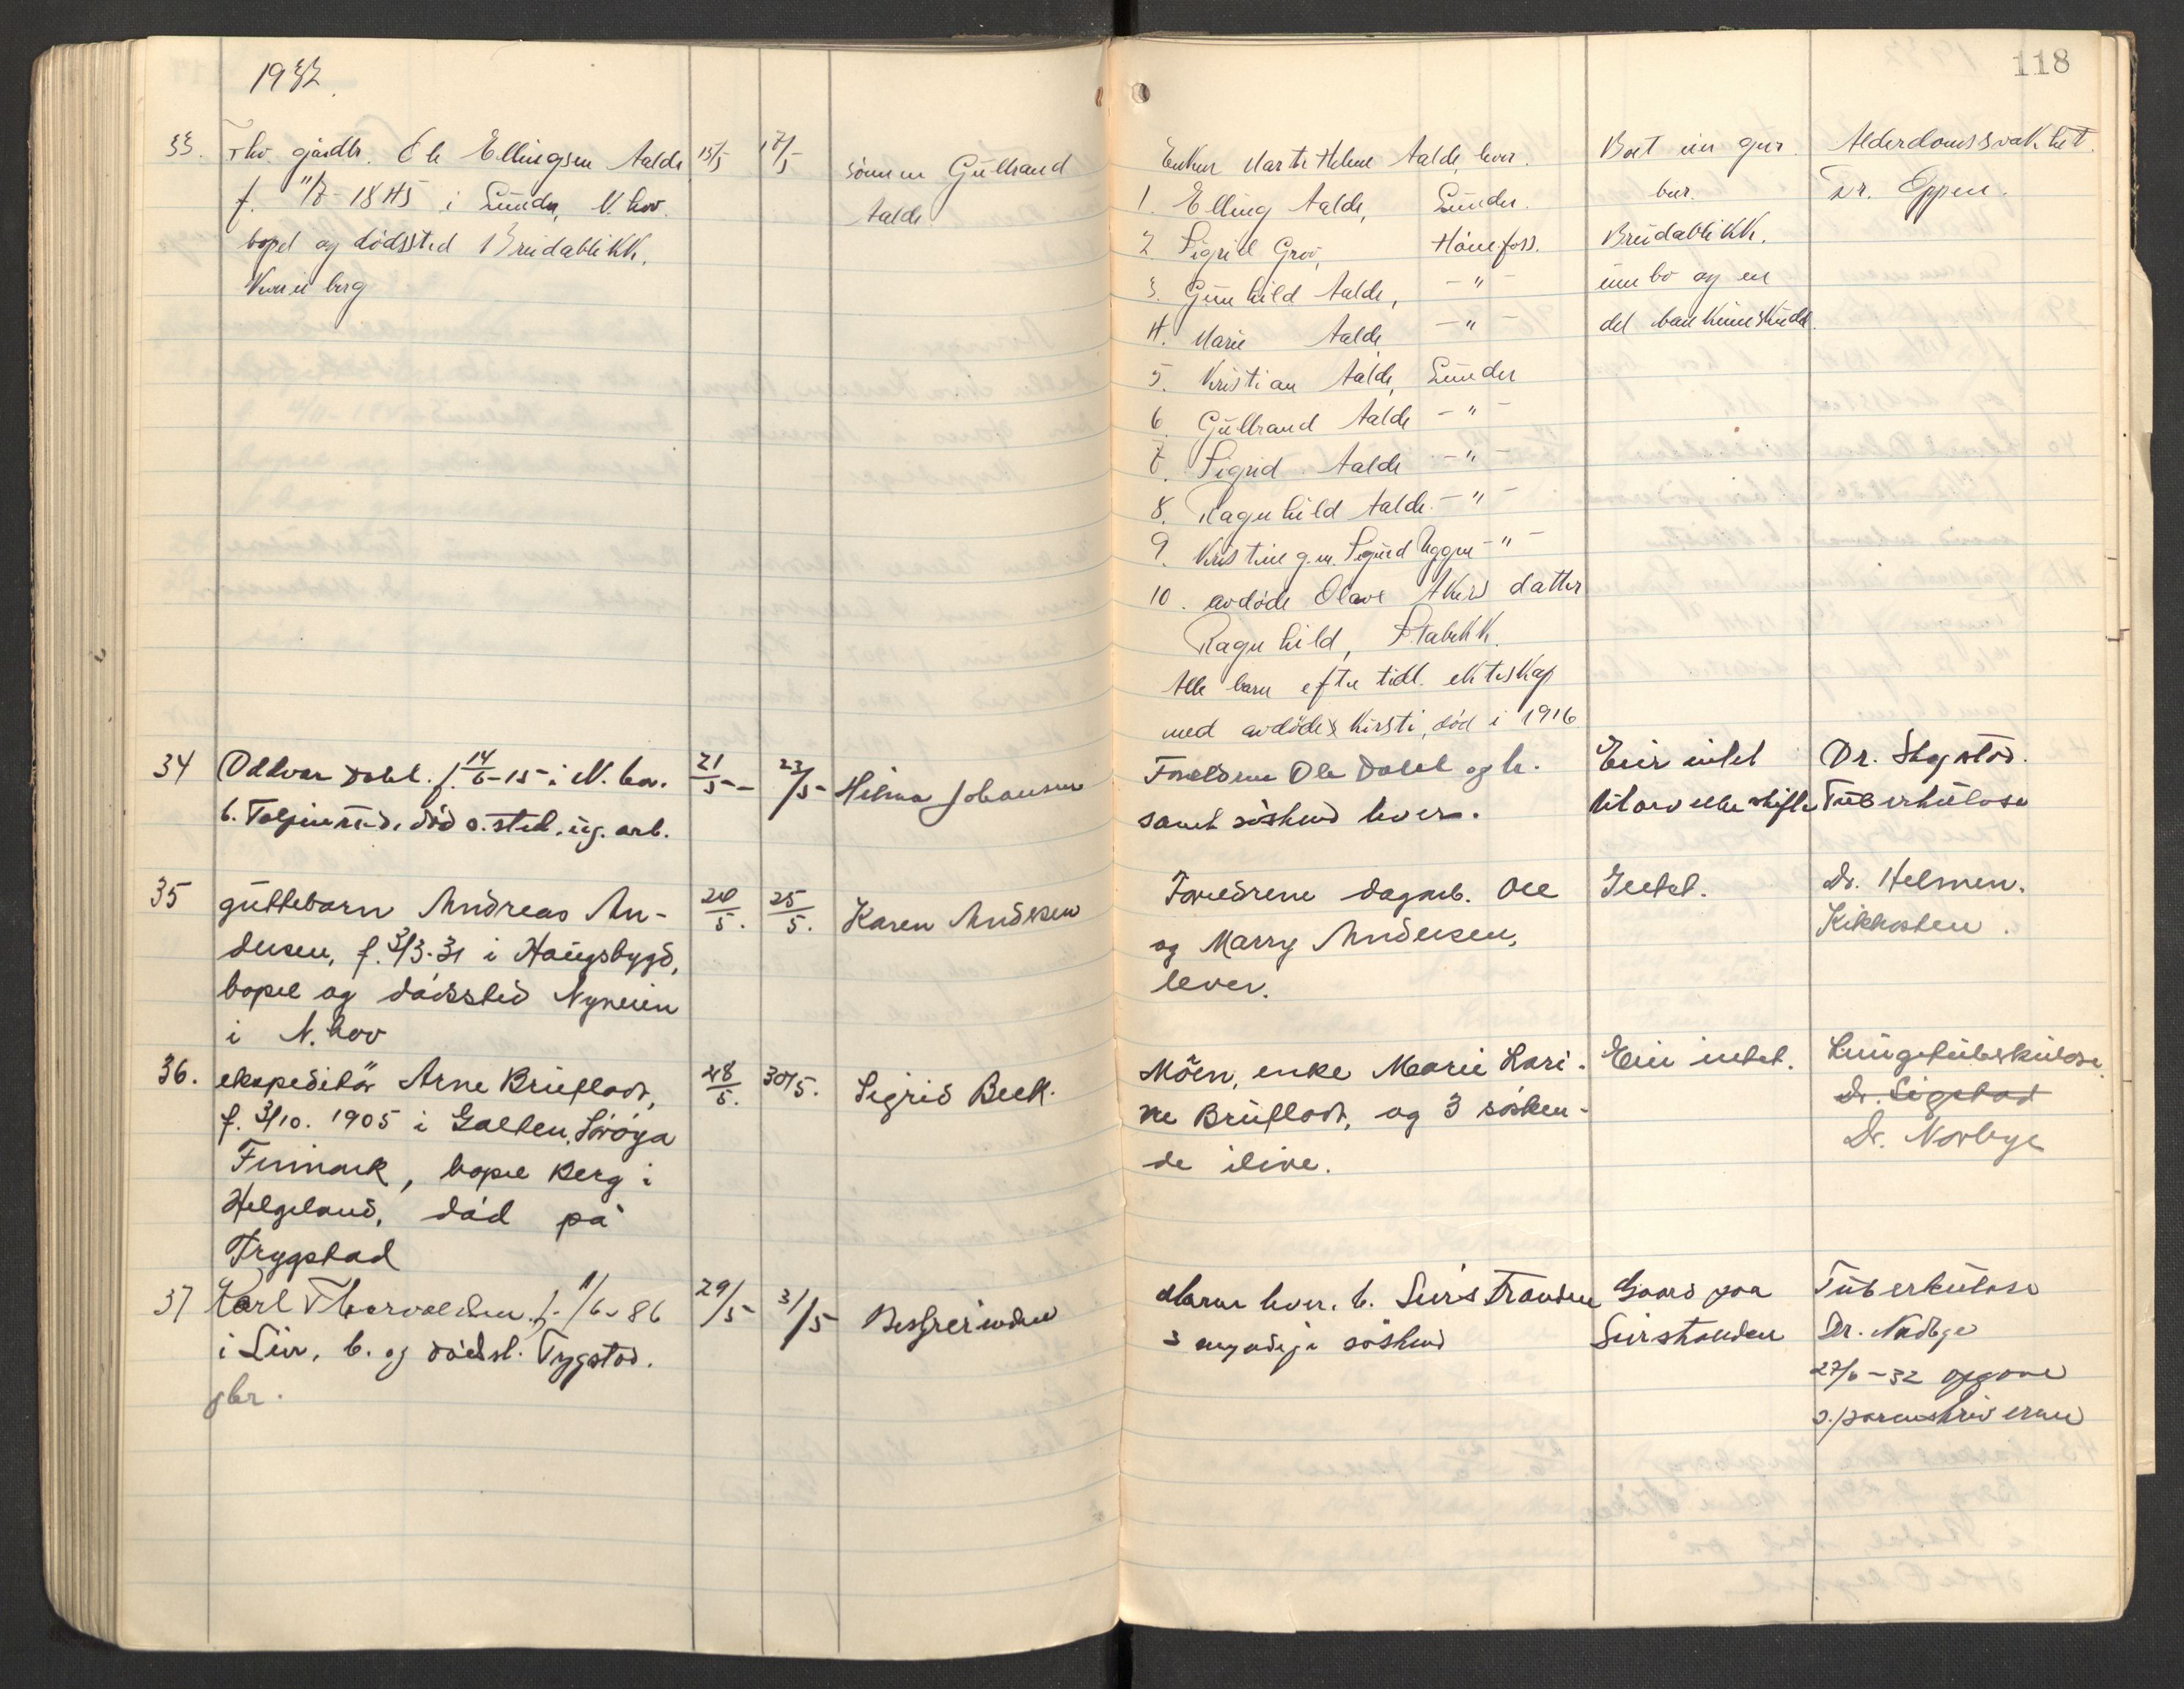 1932.
118
33. Fhv. gårdbr. Ole Ellingsen Aalde
f. 11/7-1845 i Lunder, N. hov.
bopel og dødssted Breidablikk,
15/5
17/5
sønnen Gulbrand
Aalde
Enken Marte Helene Aalde, lever.
1. Elling Aalde, Lunder.
2. Sigrid Hønefoss.
3. Gunhild Aalde, - " -
4. Marie Aalde - " -
5. Kristian Aalde, Lunder
6. Gulbrand Aalde - " -
7. Sigrid Aalde - " -
8. Ragnhild Aalde - " -
9. Kristine g.m. Sigurd - " -
10. avdøde Olave datter
Ragnhild, Stabekk.
Alle barn efter tidl. ekteskap
med avdøde Kirsti, død i 1916
Boet
Breidablikk,
innbo og en
del bankinnskudd.
Alderdomssvakhet.
Dr. Oppen.
34 Oddvar Dahl. f. 14/6-15 i N. hov.
b. død s. sted. ug. arb.
21/5
23/5
Hilma Johansen
Foreldrene Ole Dahl og h.
samt søskend lever.
Eier intet
Dr.
Tuberkulose
35 guttebarn Andreas An-
dersen, f. 3/3-31 i Haugsbygd,
bopel og dødssted
i N. hov
20/5.
25/5.
Karen Andersen
Foreldrene dagarb. Ole
og Marry Andersen,
lever.
Intet.
Dr. Helmen.
Kikhosten.
36. ekspeditør Arne Bruflodt,
f. 3/10. 1905 i Galten, Sørøya
Finmark, bopel Berg i
Helgeland, død på
Trygstad
28/5.
30/5.
Sigrid Beck.
Moren, enke Marie Lari-
ne Bruflodt, og 3 søsken-
de ilive.
Eier intet.
Lungetuberkulose.
Dr. Sigstad
Dr. Norbye
37 Karl Thorvaldsen f. 11/6-86
i Lier, b. og dødsst. Trygstad.
gbr.
29/5
31/5
Bestyrerinden
lever. b.
3 myndige søskend
Gaard paa
Tuberkulose
Dr.
27/6-32 opgave